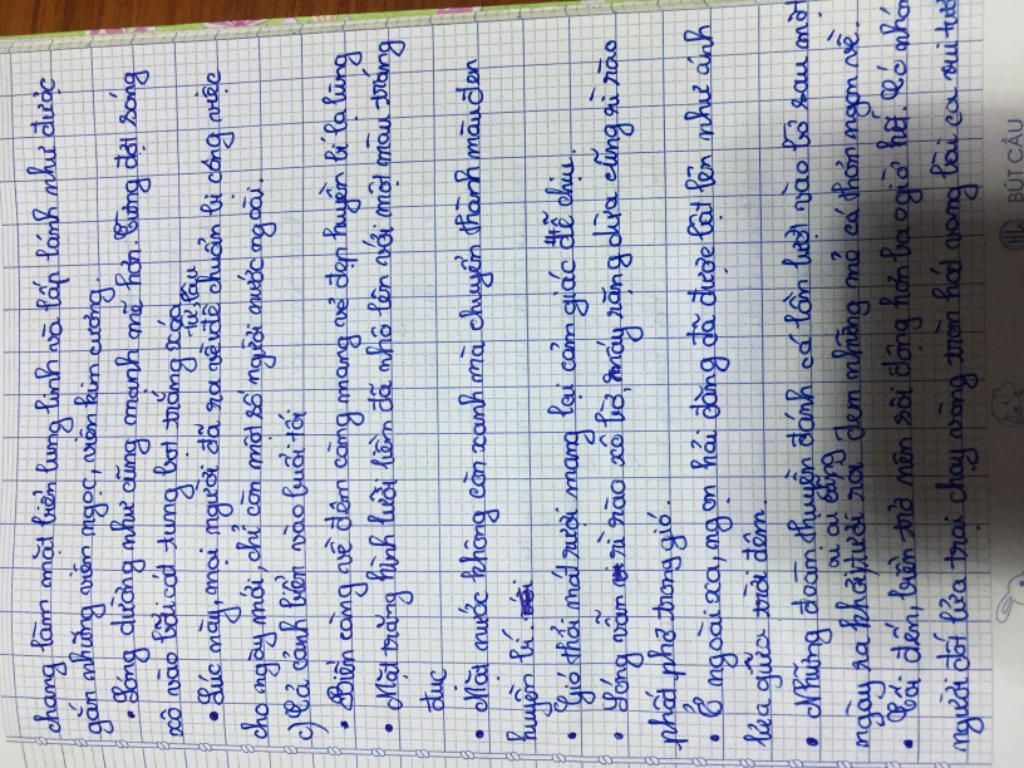 chang làm mặt biển lung linh và lấp lánh như được
gắn những viên ngọc, viên kim cương.
• Sóng dường như cũng mạnh mẽ hơn. Từng đợt sóng
xô vào bãi cát tung bọt trắng xóa
từ lâu
• Lúc này, mọi người đã ra về để chuẩn bị công việc
cho ngày mới, chỉ còn một số người nước ngoài.
c) Tả cảnh biển vào buổi tối
• Biển càng về đêm càng mang vẻ đẹp huyền bí lạ lùng
• Mặt trăng hình lưỡi liềm đã nhô lên với một màu trắng
đục
• Mặt nước không còn xanh mà chuyển thành màu đen
huyền bí.
• Gió thổi mát rượi mang lại cảm giác dễ chịu.
• Sóng vẫn rì rào xô bờ, mấy rặng dừa cũng rì rào
phất phơ trong gió.
• Ở ngoài xa, ngọn hải đăng đã được bật lên như ánh
lửa giữa trời đêm.
• Những đoàn thuyền đánh cá lần lượt vào bờ sau một
ai ai cũng
ngày ra khơi, tươi rói đem những mẻ cá thơm ngon về.
• Tối đến, biển trở nên sôi động hơn bao giờ hết. Có nhóm
người đốt lửa trại chạy vòng tròn hát vang bài ca vui tươi
BÚT CẦU